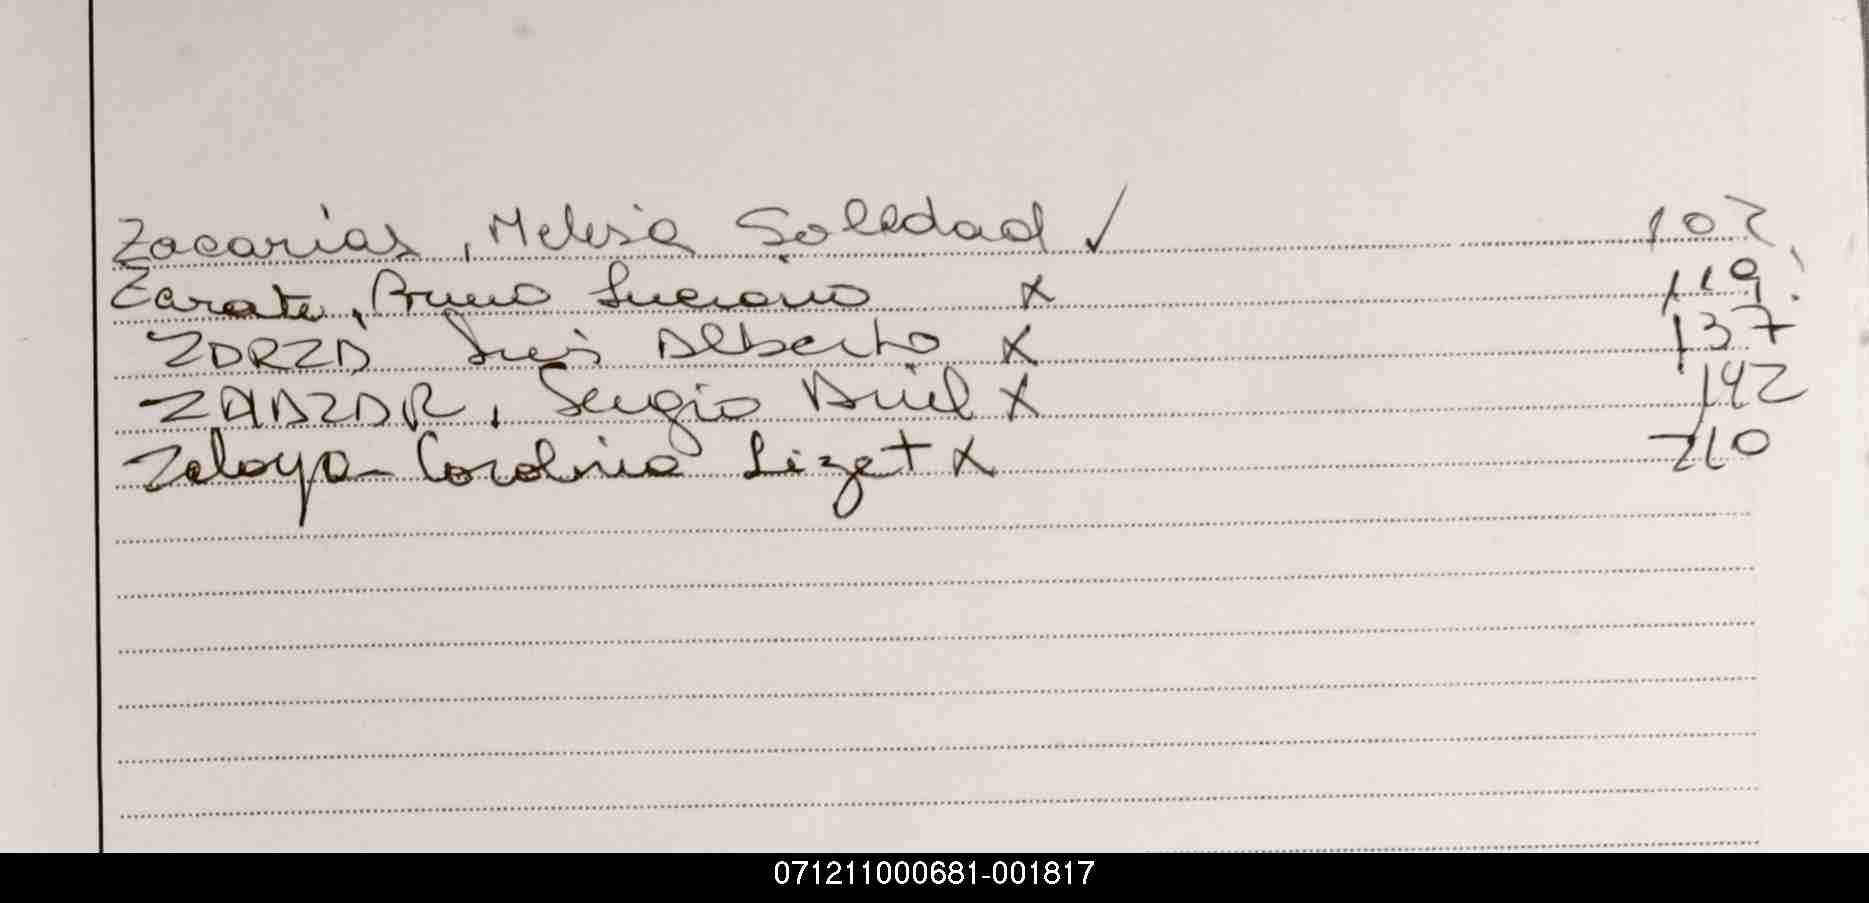 Zacarias, Melisa Soledad ✓ 102
Zarate, Bruno Luciano x 119!
ZARZA Luis Alberto x 137
Sergio Ariel x 142
Zelaya Carolina Lizet x 210
071211000681-001817